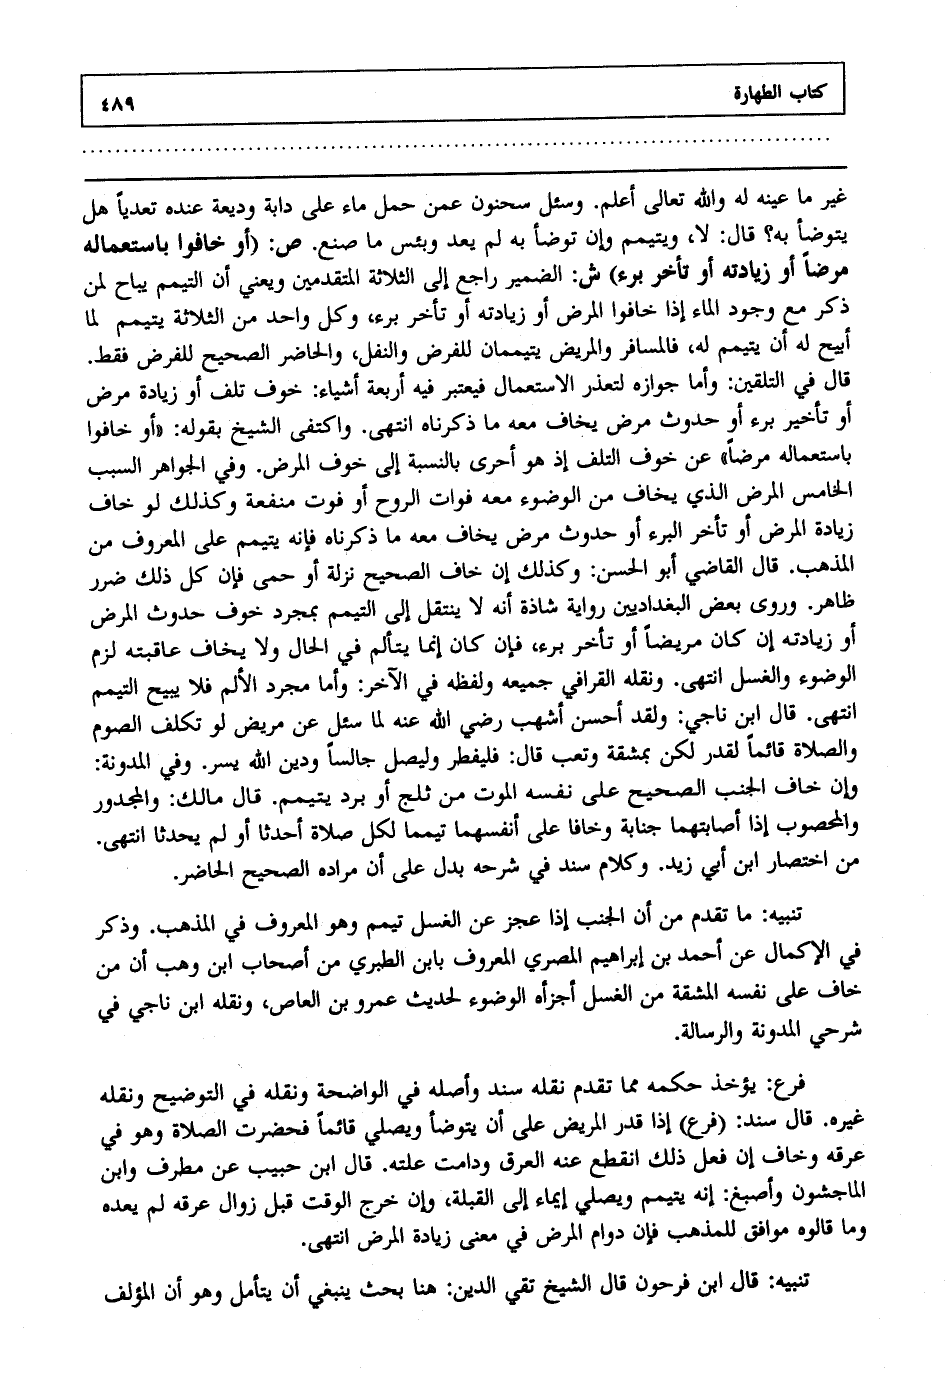 كتاب الطهارة ٤٨٩
غير ما عينه له والله تعالى أعلم. وسئل سحنون عمن حمل ماء على دابة وديعة عنده تعدياً هل
يتوضأ به؟ قال: لا، ويتيمم وإن توضأ به لم يعد وبئس ما صنع. ص: (أو خافوا باستعماله
مرضاً أو زيادته أو تأخر برء) ش: الضمير راجع إلى الثلاثة المتقدمين ويعني أن التيمم يباح لمن
ذكر مع وجود الماء إذا خافوا المرض أو زيادته أو تأخر برء، وكل واحد من الثلاثة يتيمم لما
أبيح له أن يتيمم له، فالمسافر والمريض يتيممان للفرض والنفل، والحاضر الصحيح للفرض فقط.
قال في التلقين: وأما جوازه لتعذر الاستعمال فيعتبر فيه أربعة أشياء: خوف تلف أو زيادة مرض
أو تأخير برء أو حدوث مرض يخاف معه ما ذكرناه انتهى. واكتفى الشيخ بقوله: «أو خافوا
باستعماله مرضاً» عن خوف التلف إذ هو أحرى بالنسبة إلى خوف المرض. وفي الجواهر السبب
الخامس المرض الذي يخاف من الوضوء معه فوات الروح أو فوت منفعة وكذلك لو خاف
زيادة المرض أو تأخر البرء أو حدوث مرض يخاف معه ما ذكرناه فإنه يتيمم على المعروف من
المذهب. قال القاضي أبو الحسن: وكذلك إن خاف الصحيح نزلة أو حمى فإن كل ذلك ضرر
ظاهر. وروى بعض البغداديين رواية شاذة أنه لا ينتقل إلى التيمم بمجرد خوف حدوث المرض
أو زيادته إن كان مريضاً أو تأخر برء، فإن كان إنما يتألم في الحال ولا يخاف عاقبته لزم
الوضوء والغسل انتهى. ونقله القرافي جميعه ولفظه في الآخر: وأما مجرد الألم فلا يبيح التيمم
انتهى. قال ابن ناجي: ولقد أحسن أشهب رضي الله عنه لما سئل عن مريض لو تكلف الصوم
والصلاة قائماً لقدر لكن بمشقة وتعب قال: فليفطر وليصل جالساً ودين الله يسر. وفي المدونة:
وإن خاف الجنب الصحيح على نفسه الموت من ثلج أو برد يتيمم. قال مالك: والمجدور
والمحصوب إذا أصابتهما جنابة وخافا على أنفسهما تيمما لكل صلاة أحدثا أو لم يحدثا انتهى.
من اختصار ابن أبي زيد. وكلام سند في شرحه بدل على أن مراده الصحيح الحاضر.
تنبيه: ما تقدم من أن الجنب إذا عجز عن الغسل تيمم وهو المعروف في المذهب. وذكر
في الإكمال عن أحمد بن إبراهيم المصري المعروف بابن الطبري من أصحاب ابن وهب أن من
خاف على نفسه المشقة من الغسل أجزأه الوضوء لحديث عمرو بن العاص، ونقله ابن ناجي في
شرحي المدونة والرسالة.
فرع: يؤخذ حكمه مما تقدم نقله سند وأصله في الواضحة ونقله في التوضيح ونقله
غيره. قال سند: (فرع) إذا قدر المريض على أن يتوضأ ويصلي قائماً فحضرت الصلاة وهو في
عرقه وخاف إن فعل ذلك انقطع عنه العرق ودامت علته. قال ابن حبيب عن مطرف وابن
الماجشون وأصبغ: إنه يتيمم ويصلي إيماء إلى القبلة، وإن خرج الوقت قبل زوال عرقه لم يعده
وما قالوه موافق للمذهب فإن دوام المرض في معنى زيادة المرض انتهى.
تنبيه: قال ابن فرحون قال الشيخ تقي الدين: هنا بحث ينبغي أن يتأمل وهو أن المؤلف